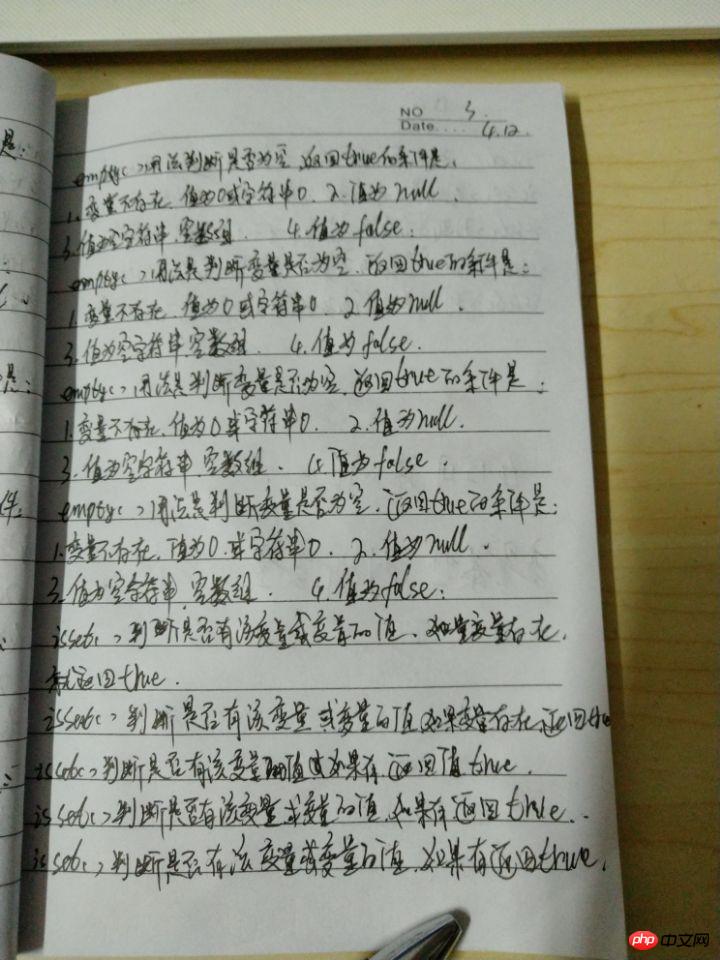 NO 3.
Date.... 4.12.
empty() 用法判断是否为空,返回true的条件是:
1.变量不存在,值为0或字符串0. 2.值为null.
3.值为空字符串,空数组. 4.值为false.
empty() 用法是判断变量是否为空,返回true的条件是:
1.变量不存在,值为0或字符串0 2.值为null.
3.值为空字符串,空数组. 4.值为false.
empty() 用法是判断变量是否为空,返回true的条件是:
1.变量不存在,值为0或字符串0. 2.值为null.
3.值为空字符串,空数组. 4.值为false.
empty() 用法是判断变量是否为空,返回true的条件是:
1.变量不存在,值为0.或字符串0. 2.值为null.
3.值为空字符串,空数组. 4.值为false.
isset() 判断是否有该变量或变量的值,如果变量存在,
就返回true.
isset() 判断是否有该变量或变量的值,如果变量存在,返回true
isset() 判断是否有该变量的值或如果有返回值true.
isset() 判断是否有该变量或变量的值,如果有返回true.
isset() 判断是否有该变量或变量的值,如果有返回true.
是:
是:
件.
php 中文网